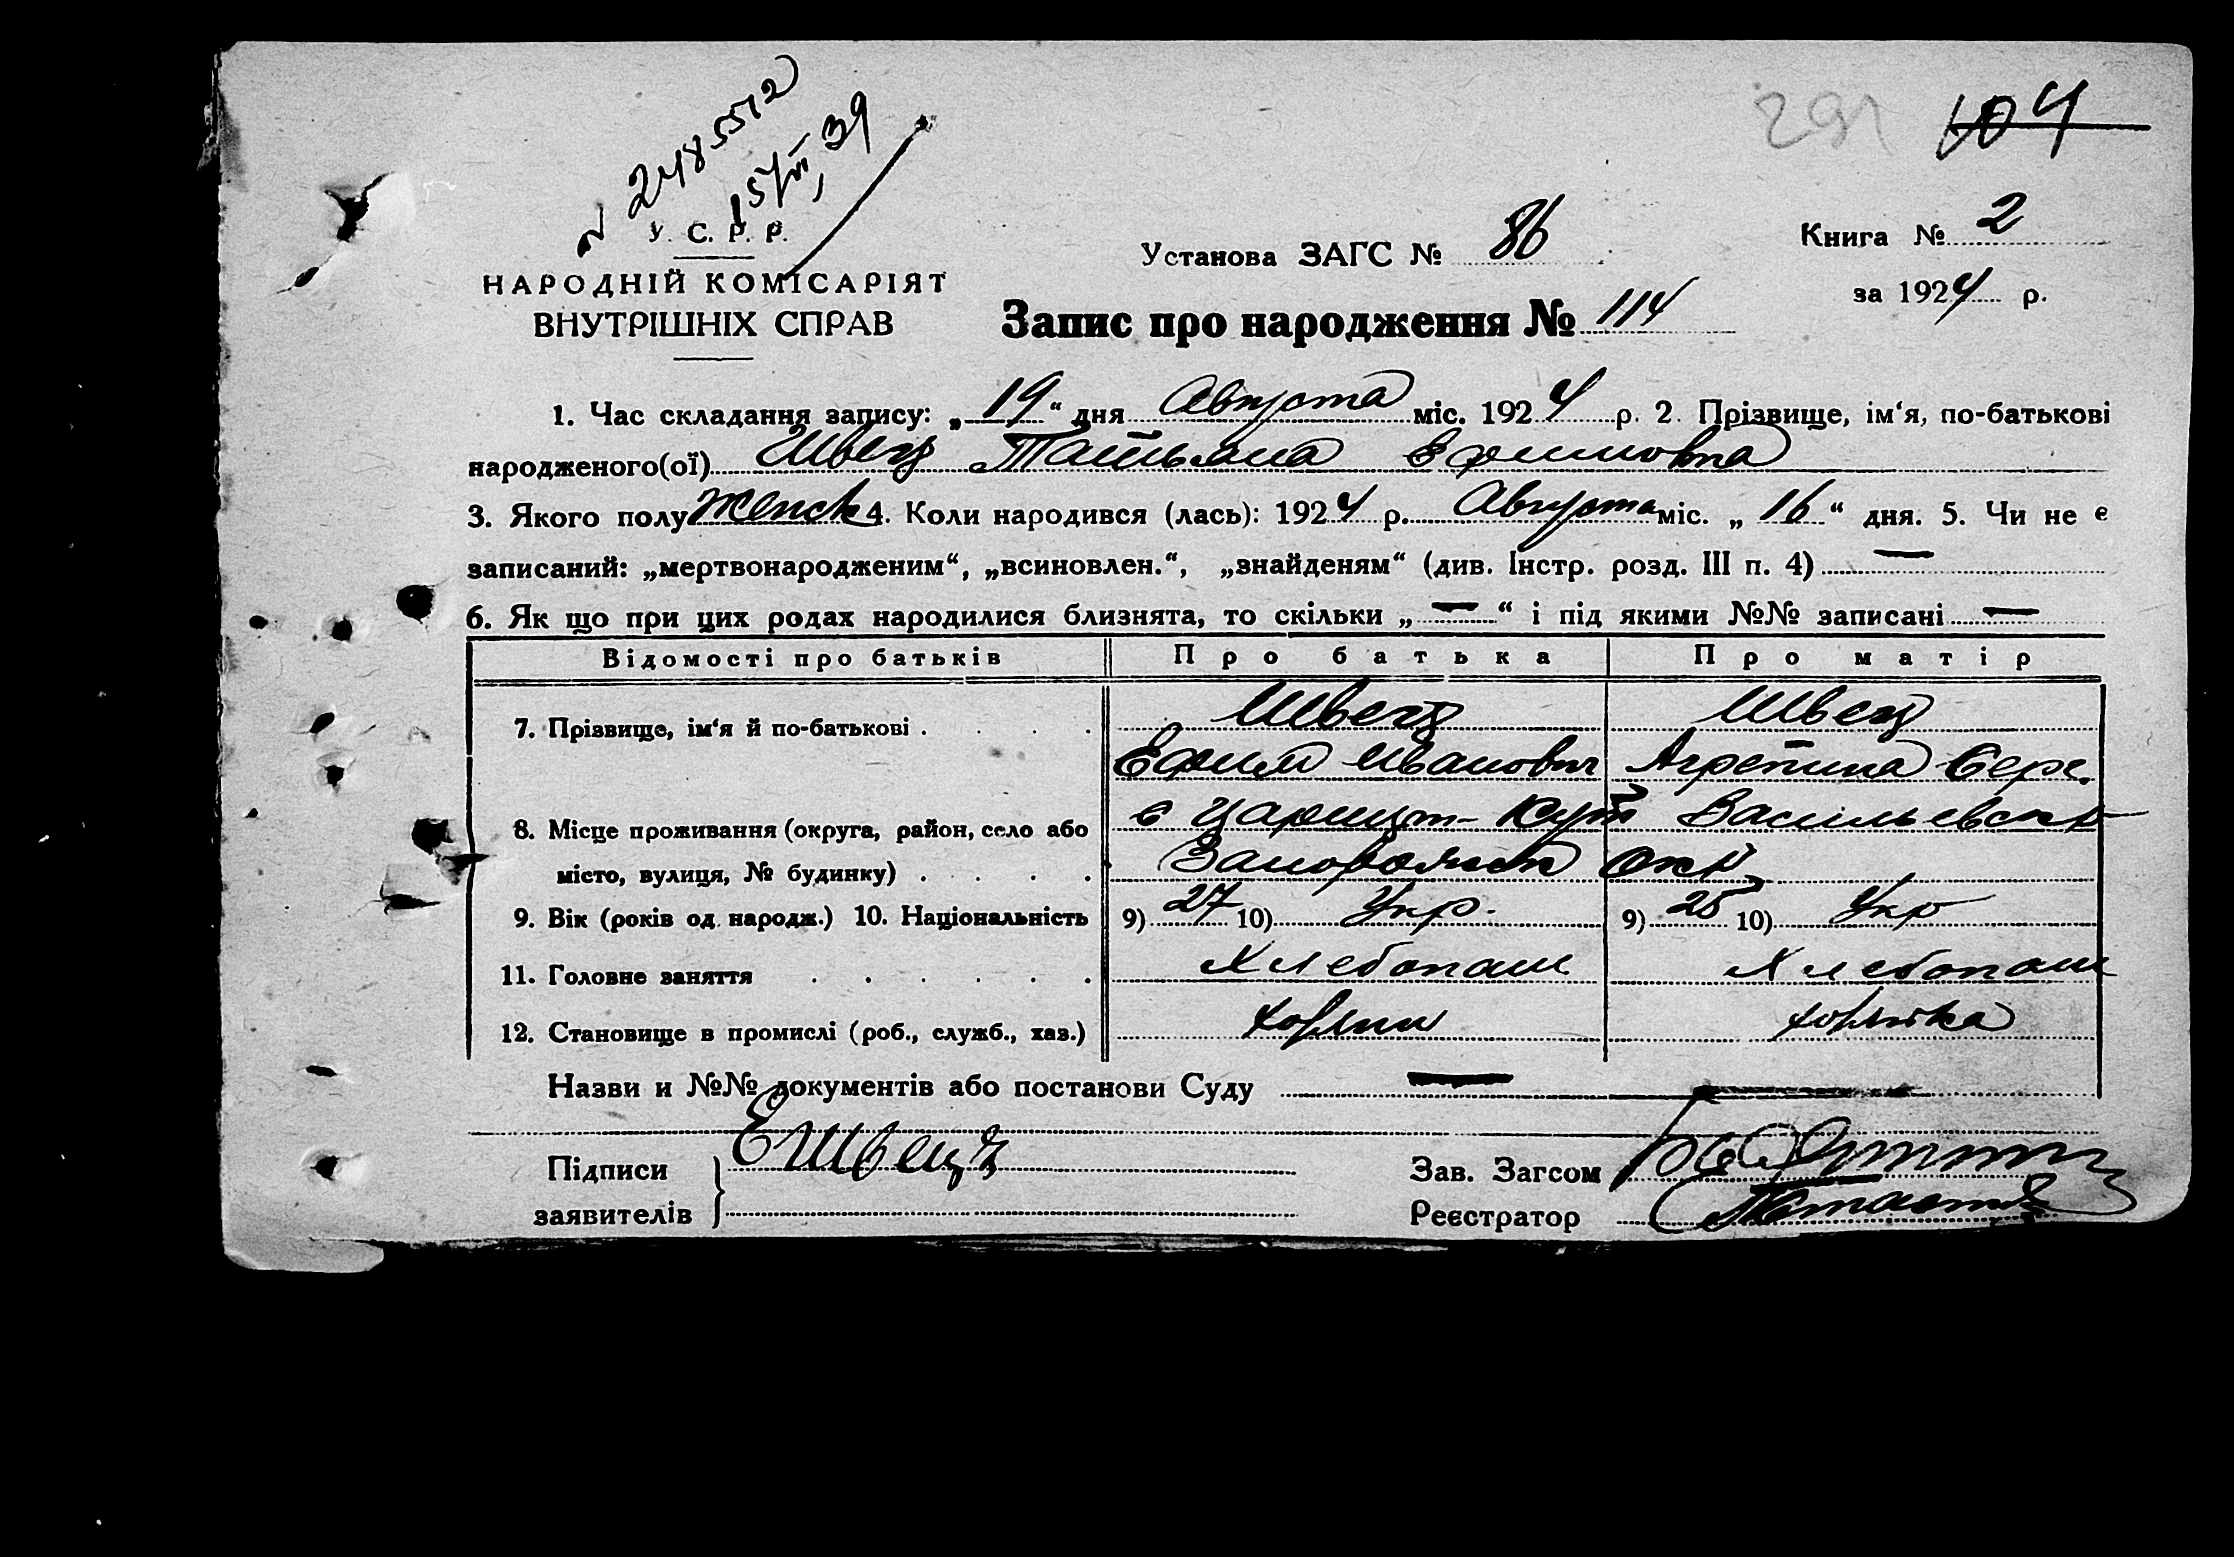 № 2485572
15/VII, 39
291 104
У. С. Р. Р.
НАРОДНІЙ КОМІСАРІЯТ
ВНУТРІШНІХ СПРАВ
Установа ЗАГС № 86
Книга № 2
за 1924 р.
Запис про народження № 114
1. Час складання запису: „19“ дня Августа міс. 1924 р. 2. Прізвище, ім‘я, по-батькові
народженого(ої) Швец Татьяна Ефимовна
3. Якого полу женск 4. Коли народився (лась): 1924 р. Августа міс. „16“ дня. 5. Чи не є
записаний: „мертвонародженим“, „всиновлен.“, „знайденям“ (див. Інстр. розд. III п. 4) —
6. Як що при цих родах народилися близнята, то скільки „—“ і під якими №№ записані —
Відомості про батьків Про батька Про матір
7. Прізвище, ім‘я й по-батькові . . . . Швец Швец
Ефим Иванович Агрепина Серг.
8. Місце проживання (округа, район, село або с Царицын-Кут Васильевск р
місто, вулиця, № будинку) . . . . Запорожск окр
9. Вік (років од народж.) 10. Національність 9) 27 10) Укр. 9) 25 10) Укр
11. Головне заняття . . . . . . Хлебопаш Хлебопаш
12. Становище в промислі (роб., служб., хаз.) хозяин хозяйка
Назви и №№ документів або постанови Суду — —
Підписи Е Швецъ
заявителів
Зав. Загсом
Реєстратор